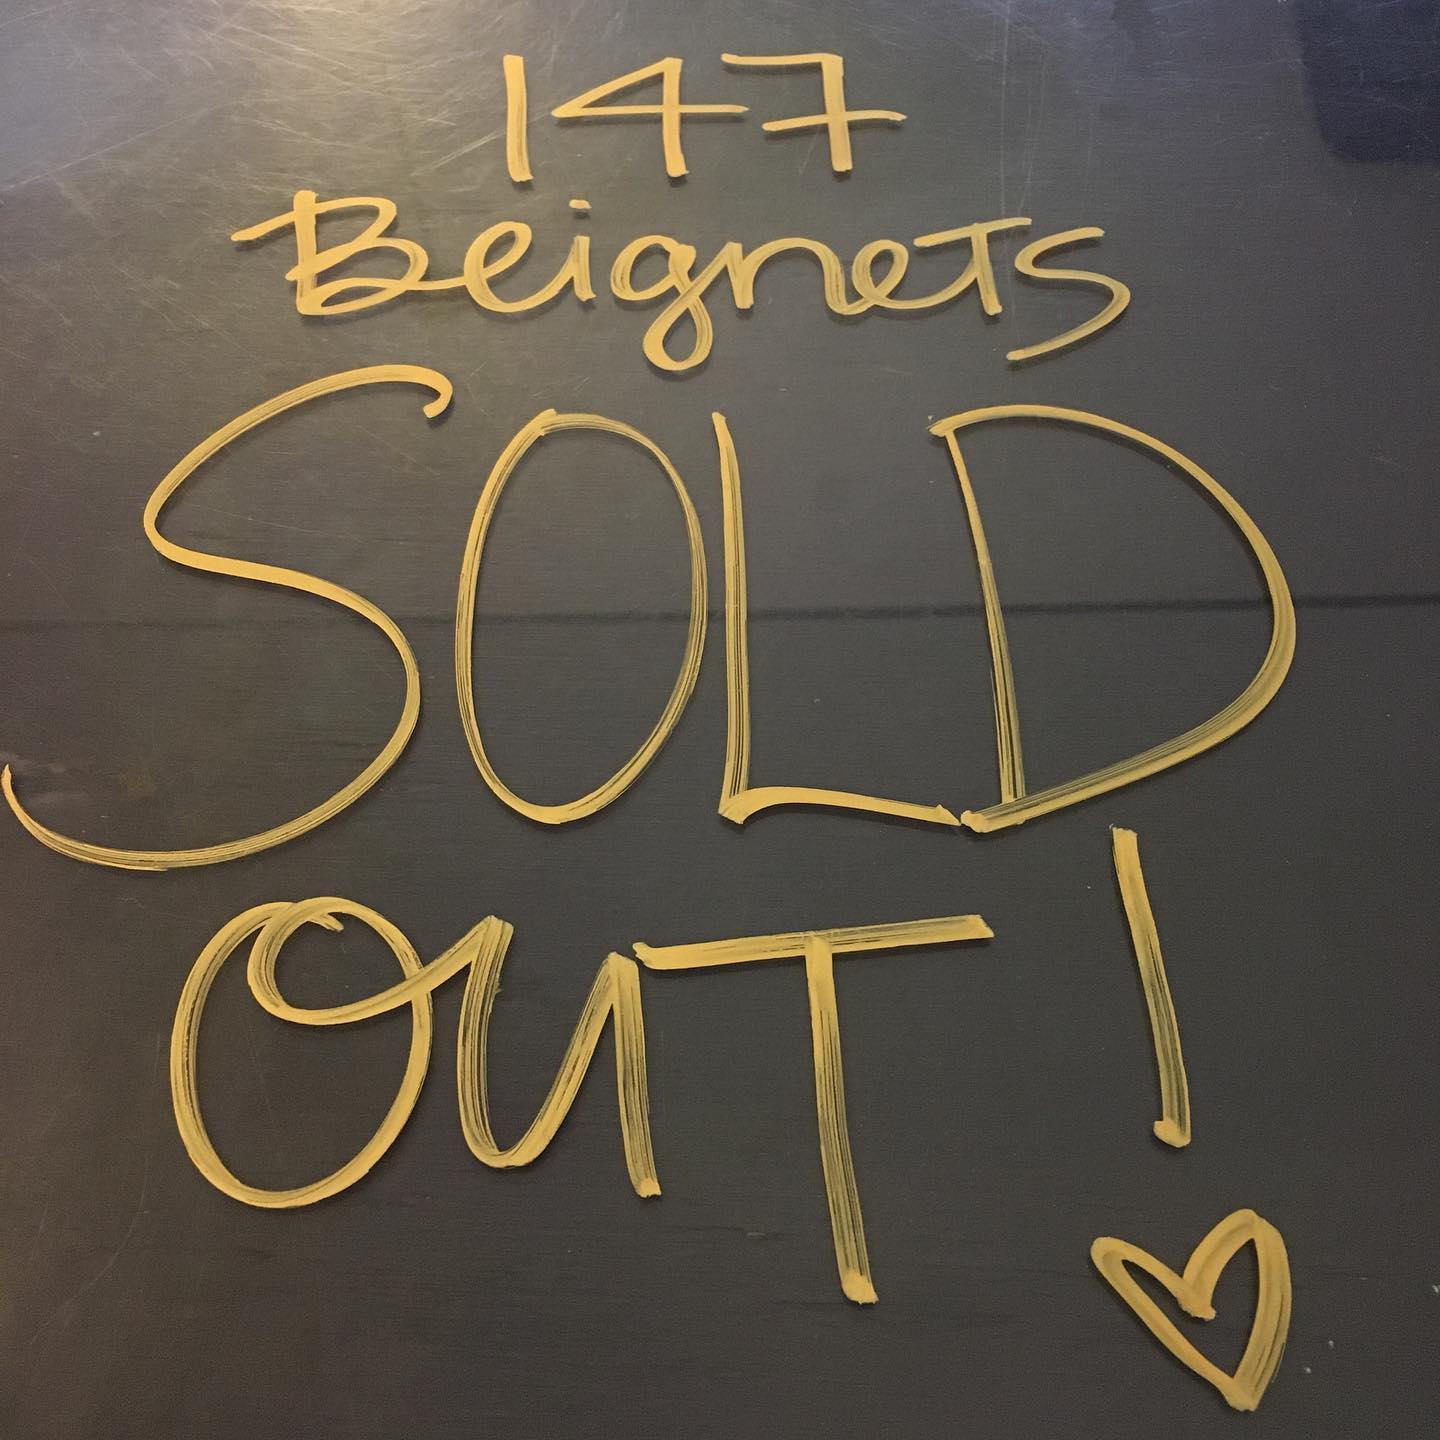 147
BeigneTs
SOLD
OuT!